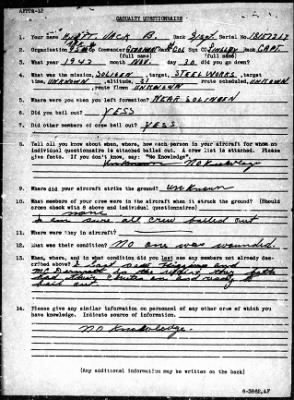 AFPPA-12
CASUALTY QUESTIONNAIRE
1. Your name HIATT JACK B. Rank S/Sgt Serial No.
2. Organization Gp Commander Col Sqn CO TINSLEY Rank CAPT.
(full name) (full name)
3. What year 1943 month NOV. day 30 did you go down?
4. What was the mission, SOLIGEN, target, STEEL WORKS, target
time, UNKNOWN, altitude, route scheduled, UNKNOWN
route flown UNKNOWN
5. Where were you when you left formation? NEAR SOLINGEN
6. Did you bail out? YESS
7. Did other members of crew bail out? YESS
8. Tell all you know about when, where, how each person in your aircraft for whom
no individual questionnaire is attached bailed out. A crew list is attached. Please
give facts. If you don't know, say: "No Knowledge".
NO Knowledge
9. Where did your aircraft strike the ground? unknown
10. What members of your crew were in the aircraft when it struck the ground? (Should
cross check with 8 above and individual questionnaires)
none
I am sure all crew bailed out
11. Where were they in aircraft?
12. What was their condition? NO one was wounded.
13. When, where, and in what condition did you last see any members not already described
above? I last seen and
McDermott in the they both
had their chutes on and ready to
bail out.
14. Please give any similar information on personnel of any other crew of which you
have knowledge. Indicate source of information.
NO Knowledge.
(Any additional information may be written on the back)
6-3862,AF